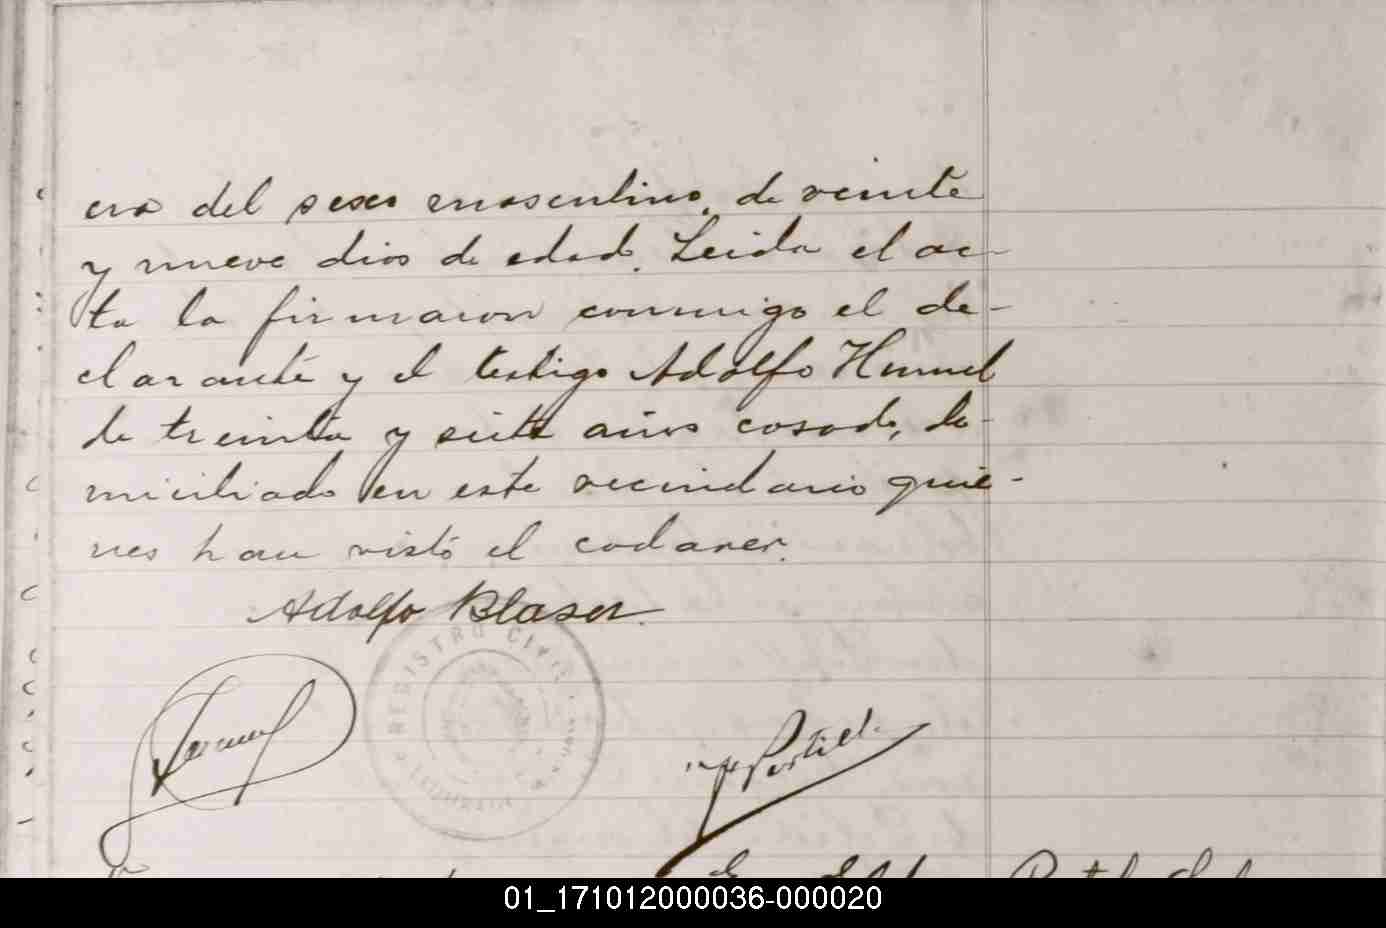 era del sexo masculino, de veinte
y nueve dias de edad. Leida el ac-
ta la firmaron conmigo el de-
clarante y el testigo Adolfo Hunnel
de treinta y siete años casado, do-
miciliado en este vecindario quie-
nes han visto el cadaver.
Adolfo Blaser
REGISTRO CIVIL
01_171012000036-000020